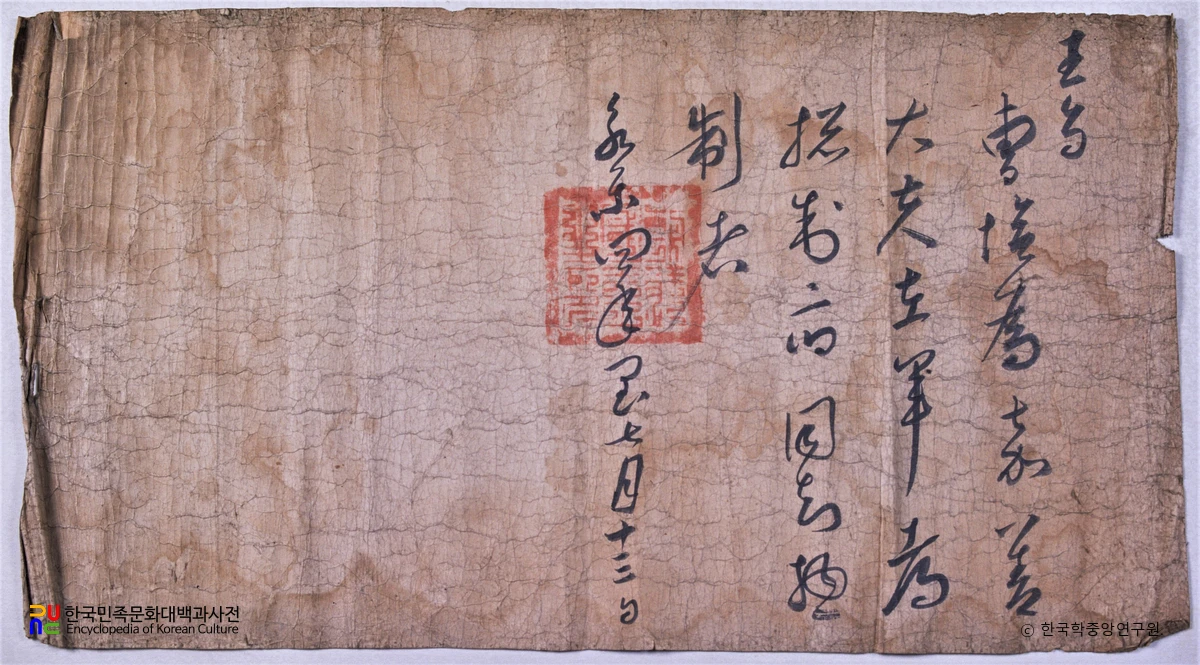 王旨
曺恰爲嘉善
大夫左軍都
摠制府同知摠
制者
永樂四年閏七月十三日
한국민족문화대백과사전
Encyclopedia of Korean Culture
© 한국학중앙연구원